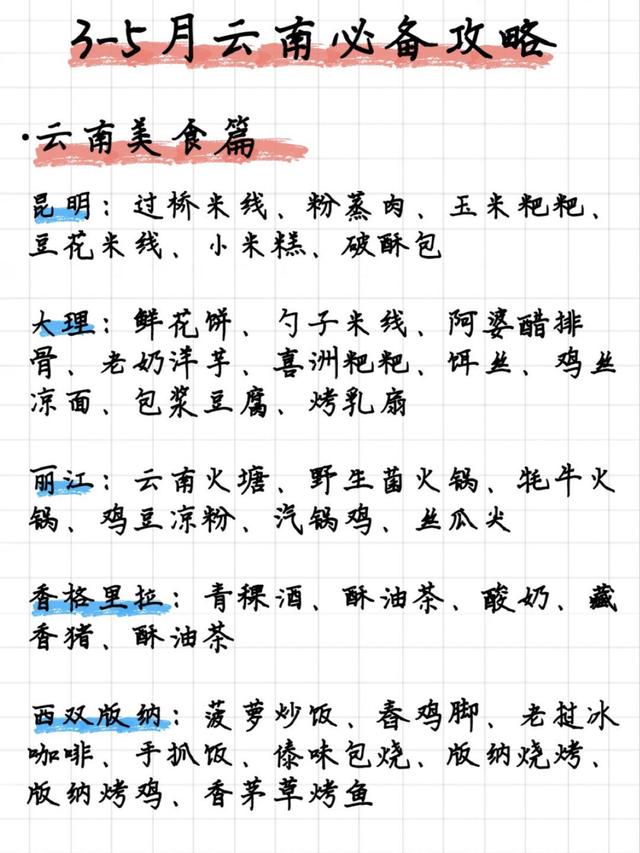 3-5月云南必备攻略
·云南美食篇
昆明：过桥米线、粉蒸肉、玉米粑粑、
豆花米线、小米糕、破酥包
大理：鲜花饼、勺子米线、阿婆醋排
骨、老奶洋芋、喜洲粑粑、饵丝、鸡丝
凉面、包浆豆腐、烤乳扇
丽江：云南火塘、野生菌火锅、牦牛火
锅、鸡豆凉粉、汽锅鸡、丝瓜尖
香格里拉：青稞酒、酥油茶、酸奶、藏
香猪、酥油茶
西双版纳：菠萝炒饭、舂鸡脚、老挝冰
咖啡、手抓饭、傣味包烧、版纳烧烤、
版纳烤鸡、香茅草烤鱼